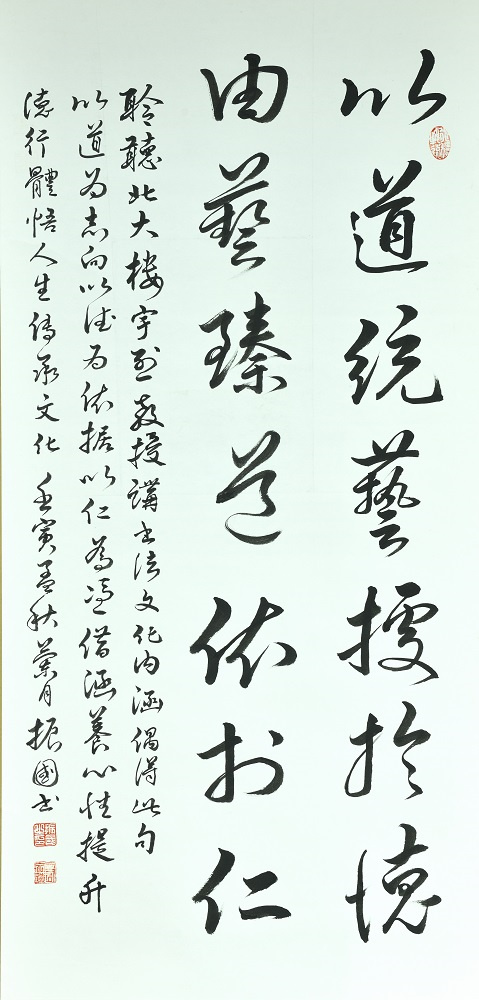 以道统藝據於德
由藝臻道依於仁
聆聽北大楼宇烈教授講书法文化内涵偶得此句
以道为志向以德为依据以仁為凭借涵養心性提升
德行體悟人生传承文化 壬寅孟秋蘭月振國书